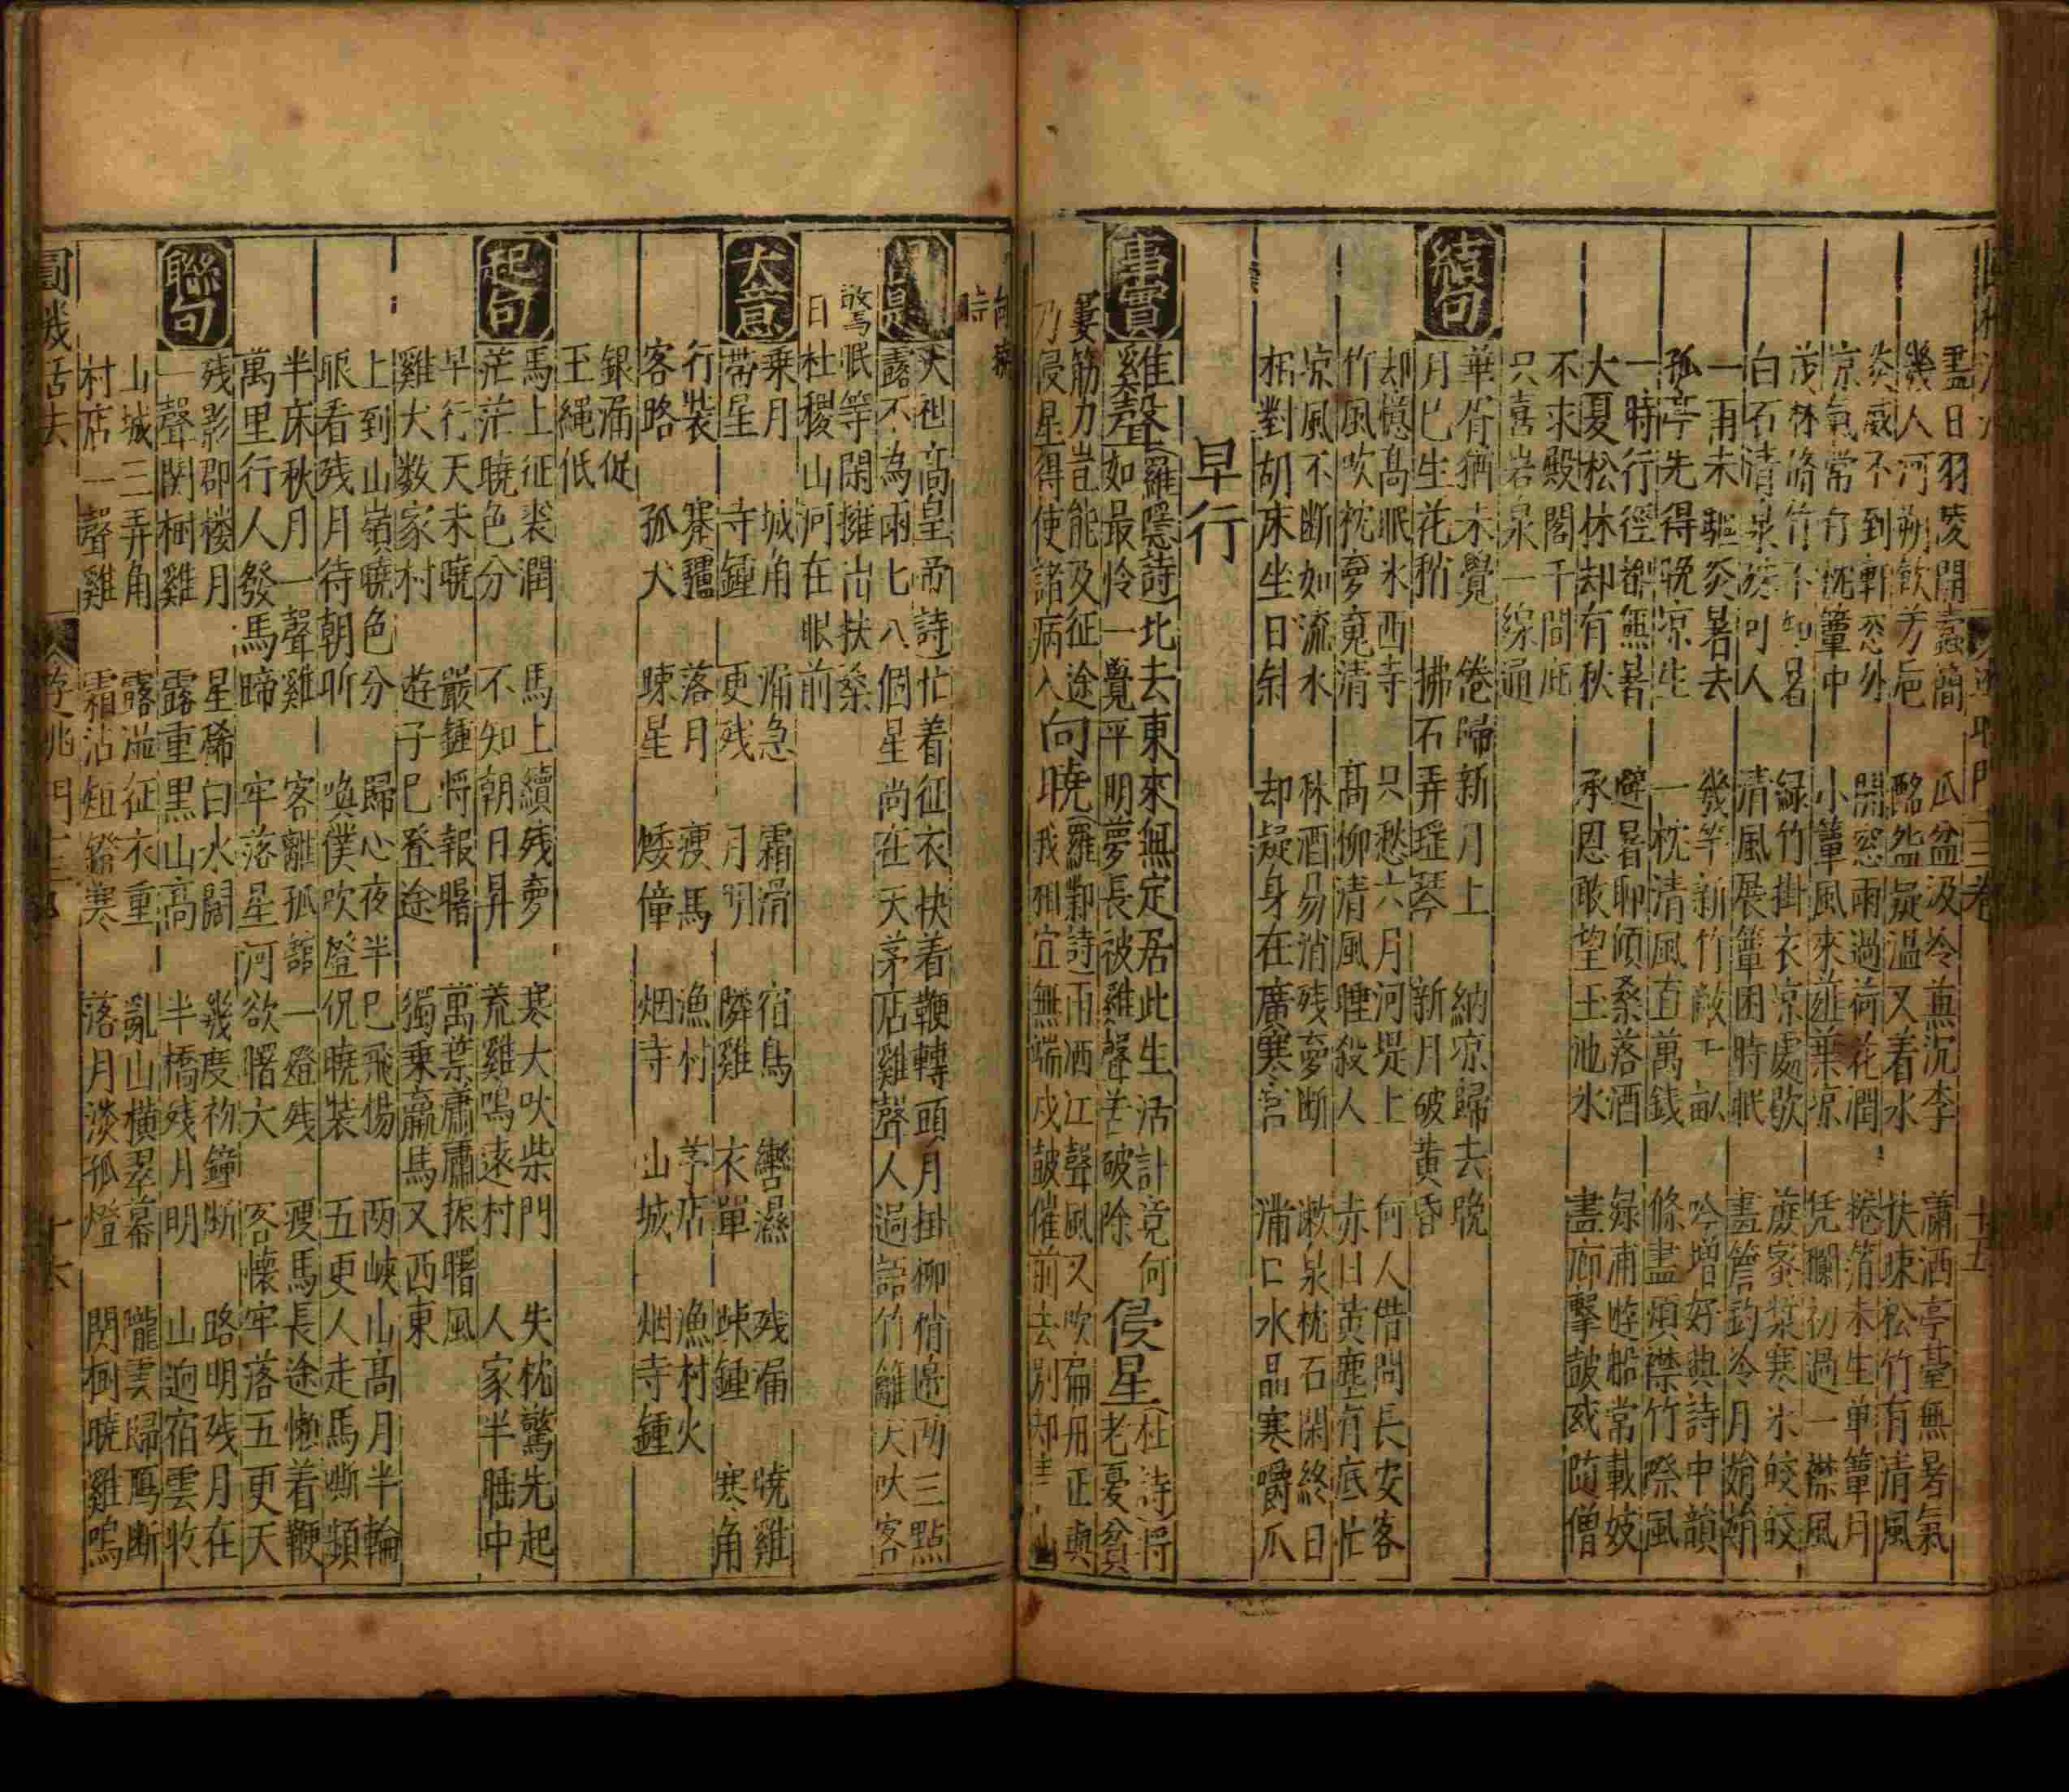 盡日羽陵開蠹簡 瓜盆汲冷薦沉李 瀟洒亭臺無暑氣
幾人河朔飲芳卮 疑温又着水 扶疎松竹有清風
炎威不到軒窓外 開窓雨過荷花潤 捲箔未生単簟月
凉氣常行枕簟中 小簟風來薤葉凉 凭欄初過一襟風
茂林脩竹不知暑 緑竹掛衣凉處歇 蔗蜜漿寒氷皎皎
白石清泉疑可人 清風展簟困時眠 畫簷鈎冷月娟娟
一雨未驅炎暑去 幾竿新竹敵千畝 吟增好興詩中韻
孤亭先得晚凉生 一枕清風直萬錢 滌盡煩襟竹際風
一時行徑都無暑 避暑聊傾桑落酒 緑浦遊船常載妓
大夏松林却有秋 承恩敢望玉池氷 畫廊擊皷或隨僧
不求殿閣千間庇
只喜岩泉一線通
結句
華胥猶未覺 倦歸新月上 納凉歸去晚
月已生花稍 拂石弄瑶琴 新月破黄昏
却憶髙眠氷西寺 只愁六月河堤上 何人借問長安客
竹風吹枕夢魂清 髙柳清風睡殺人 赤日黄塵有底忙
凉風不断如流水 秋酒易消残夢断 漱泉枕石閑終日
栢對胡床坐日斜 却疑身在廣寒宫 滿口水晶寒嚼瓜
早行
事實
雞聲 羅隱詩北去東來無定居此生活計竟何
如最怜一覺平明夢長被雞聲差破除 侵星 杜詩將老憂貧
窶筋力豈能及征途
乃侵星得使諸病入 向曉 羅鄴詩雨洒江聲風又吹扁舟正與
我相宜無端戍皷催前去別却
大祖高皇帝詩忙着征衣快着鞭轉頭月掛柳梢邊两三點
露不為雨七八個星尚在天茅店雞聲人過語竹籬犬吠客
驚眠等閑擁出扶桑
日杜稷山河在眼前
大意
乗月 城角 漏急 霜滑 宿鳥 轡濕 残漏 曉雞
帶星 寺鍾 更残 月明 隣雞 衣單 踈鍾 寒角
行裝 寒驢 落月 瘦馬 漁村 茅店 漁村火
客路 孤犬 踈星 矮僮 烟寺 山城 烟寺鍾
銀漏促
玉繩低
起句
馬上征裘潤 馬上續残夢 寒犬吠柴門 失枕驚先起
茫茫曉色分 不知朝日昇 荒雞鳴遠村 人家半睡中
早行天未曉 嚴鍾将報曙 萬葉肅肅振曙風
雞犬数家村 遊子已登途 獨乗羸馬又西東
上到山嶺曉色分 歸心夜半已飛揚 两峽山髙月半輪
眼看残月待朝昕 喚僕吹燈促曉装 五更人走馬嘶頻
半床秋月一聲雞 客離孤舘一燈残 疲馬長途懶着鞭
萬里行人發馬蹄 牢落星河欲曙天 客懷牢落五更天
聯句
残影郡楼月 星稀白水闊 幾度初鐘断 路明残月在
一聲関樹雞 露重黒山高 半橋残月明 山逈宿雲收
山城三弄角 露滋征衣重 亂山横翠幕 隴雲歸鴈断
村店一聲雞 霜沾短鐙寒 落月淡孤燈 関樹曉雞鳴
圓機活法 十六